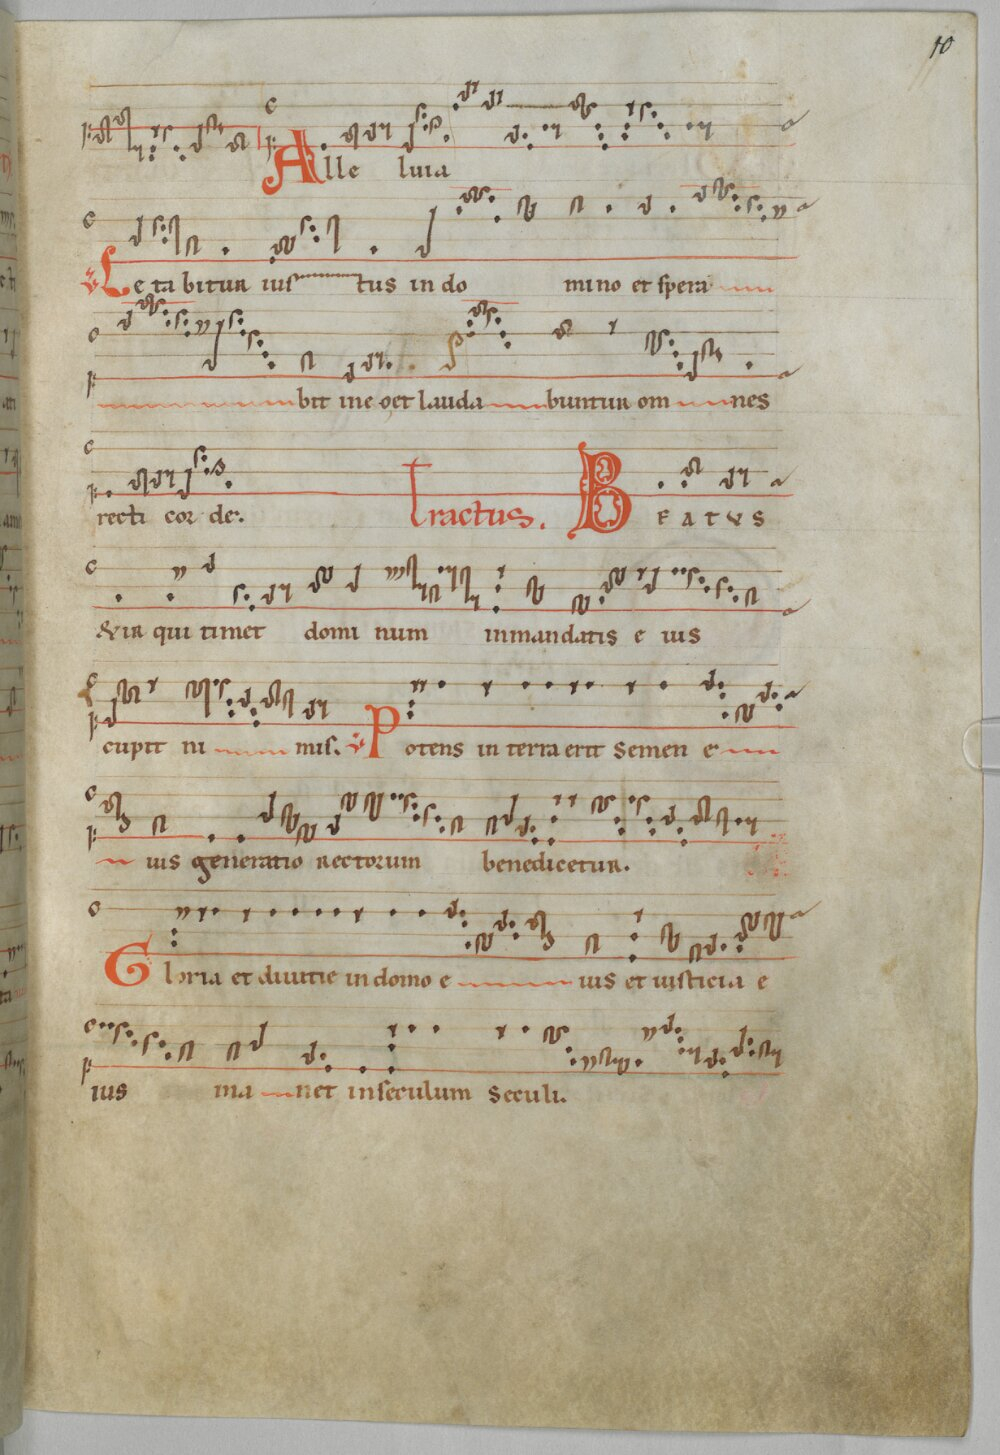 10
Alle luia
Le ta bitur ius tus in do mino et spera
bit in eo et lauda buntur om nes
recti cor de. Tractus. BEATUS
vir qui timet domi num in mandatis e ius
cupit ni mis. Potens in terra erit semen e
ius generatio rectorum benedicetur.
Gloria et divitie in domo e ius et iusticia e
ius ma net in seculum seculi.